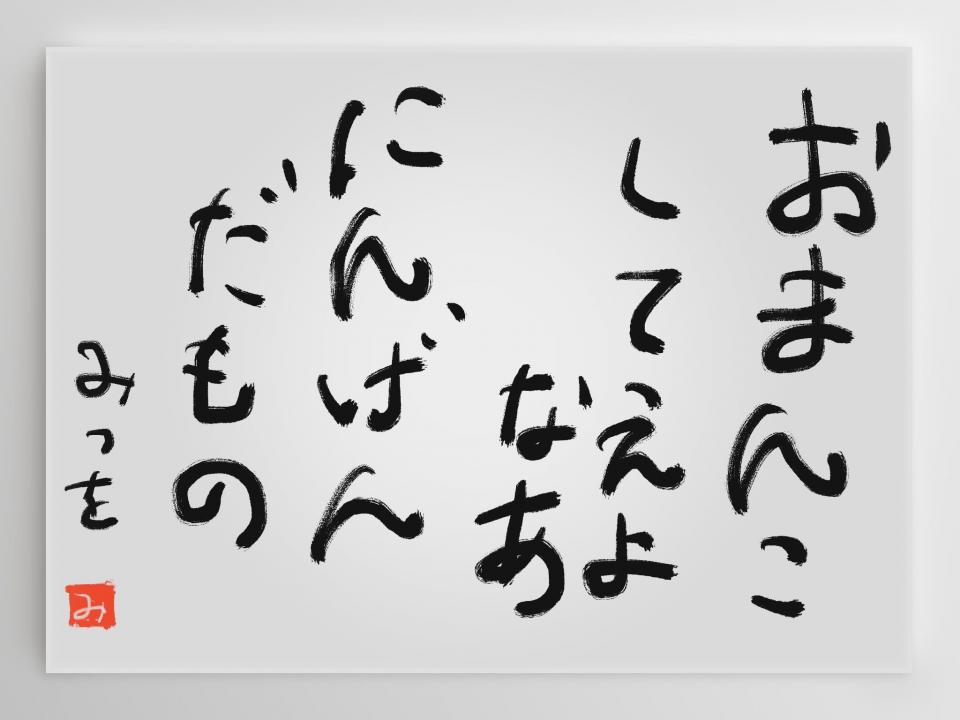 おまんこ
してえよ
なあ
にんげん
だもの
みつを
み